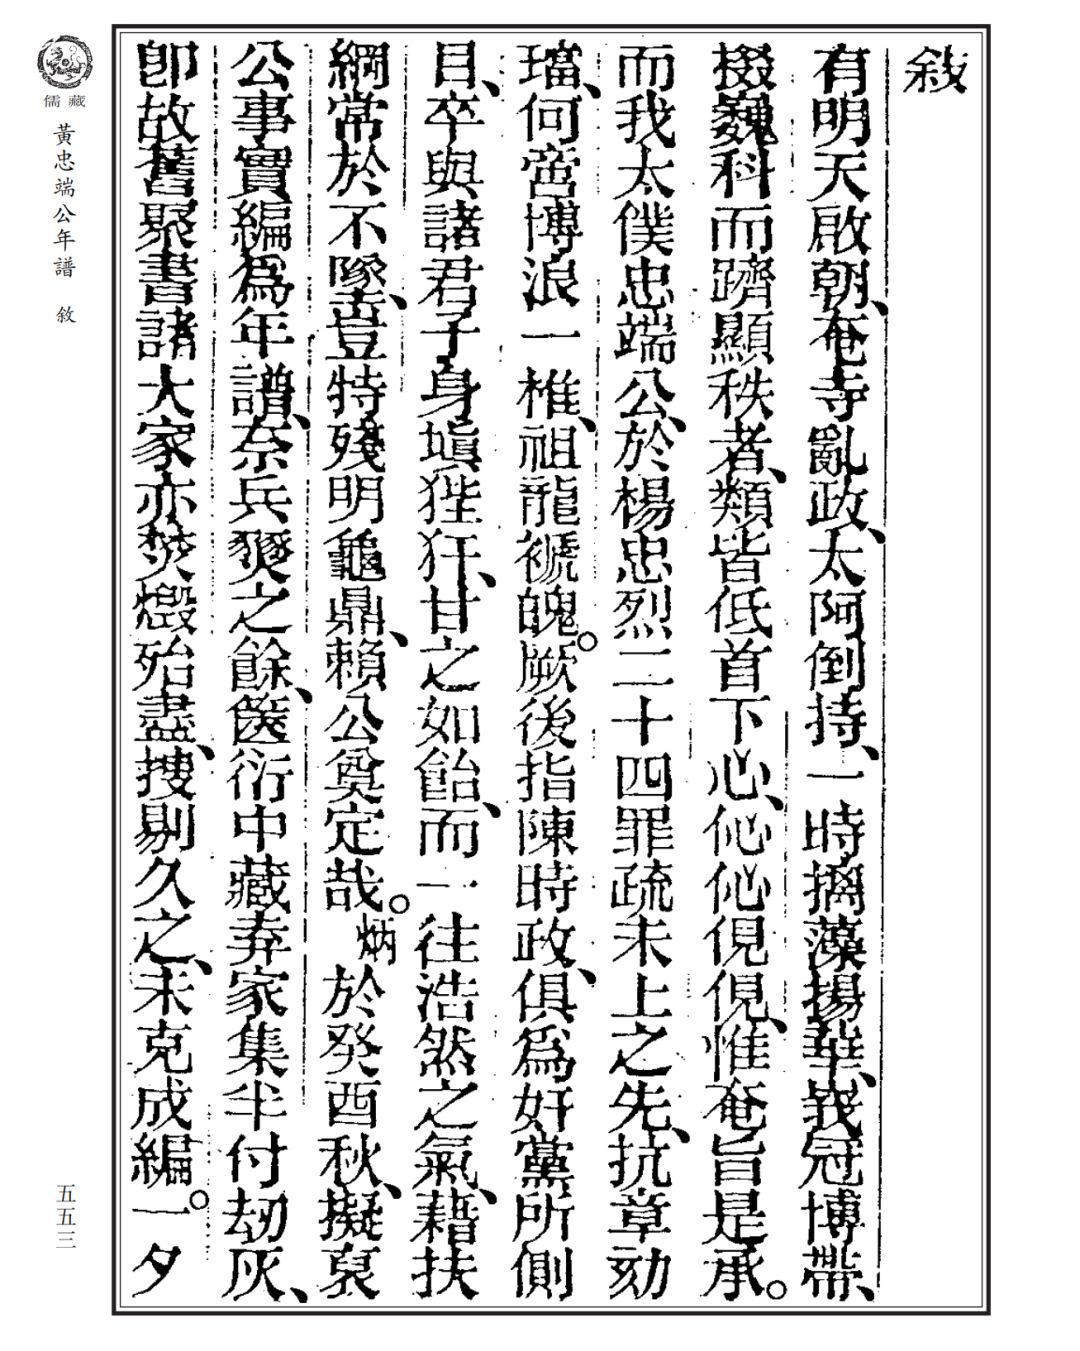 敍
有明天啟朝、奄寺亂政、太阿倒持、一時摛藻揚華、峩冠博帶、
掇巍科而躋顯秩者、類皆低首下心、伈伈俔俔、惟奄旨是承。
而我太僕忠端公、於楊忠烈二十四罪疏未上之先、抗章劾
璫、何啻博浪一椎、祖龍褫魄。厥後指陳時政、俱爲奸黨所側
目、卒與諸君子身塡狴犴、甘之如飴、而一往浩然之氣、藉扶
綱常於不墜、豈特殘明龜鼎、賴公奠定哉。炳於癸酉秋、擬裒
公事實編爲年譜、奈兵燹之餘、篋衍中藏弆家集半付劫灰、
卽故舊聚書諸大家亦焚燬殆盡、搜剔久之、未克成編。一夕
儒藏
黃忠端公年譜 敘
五五三